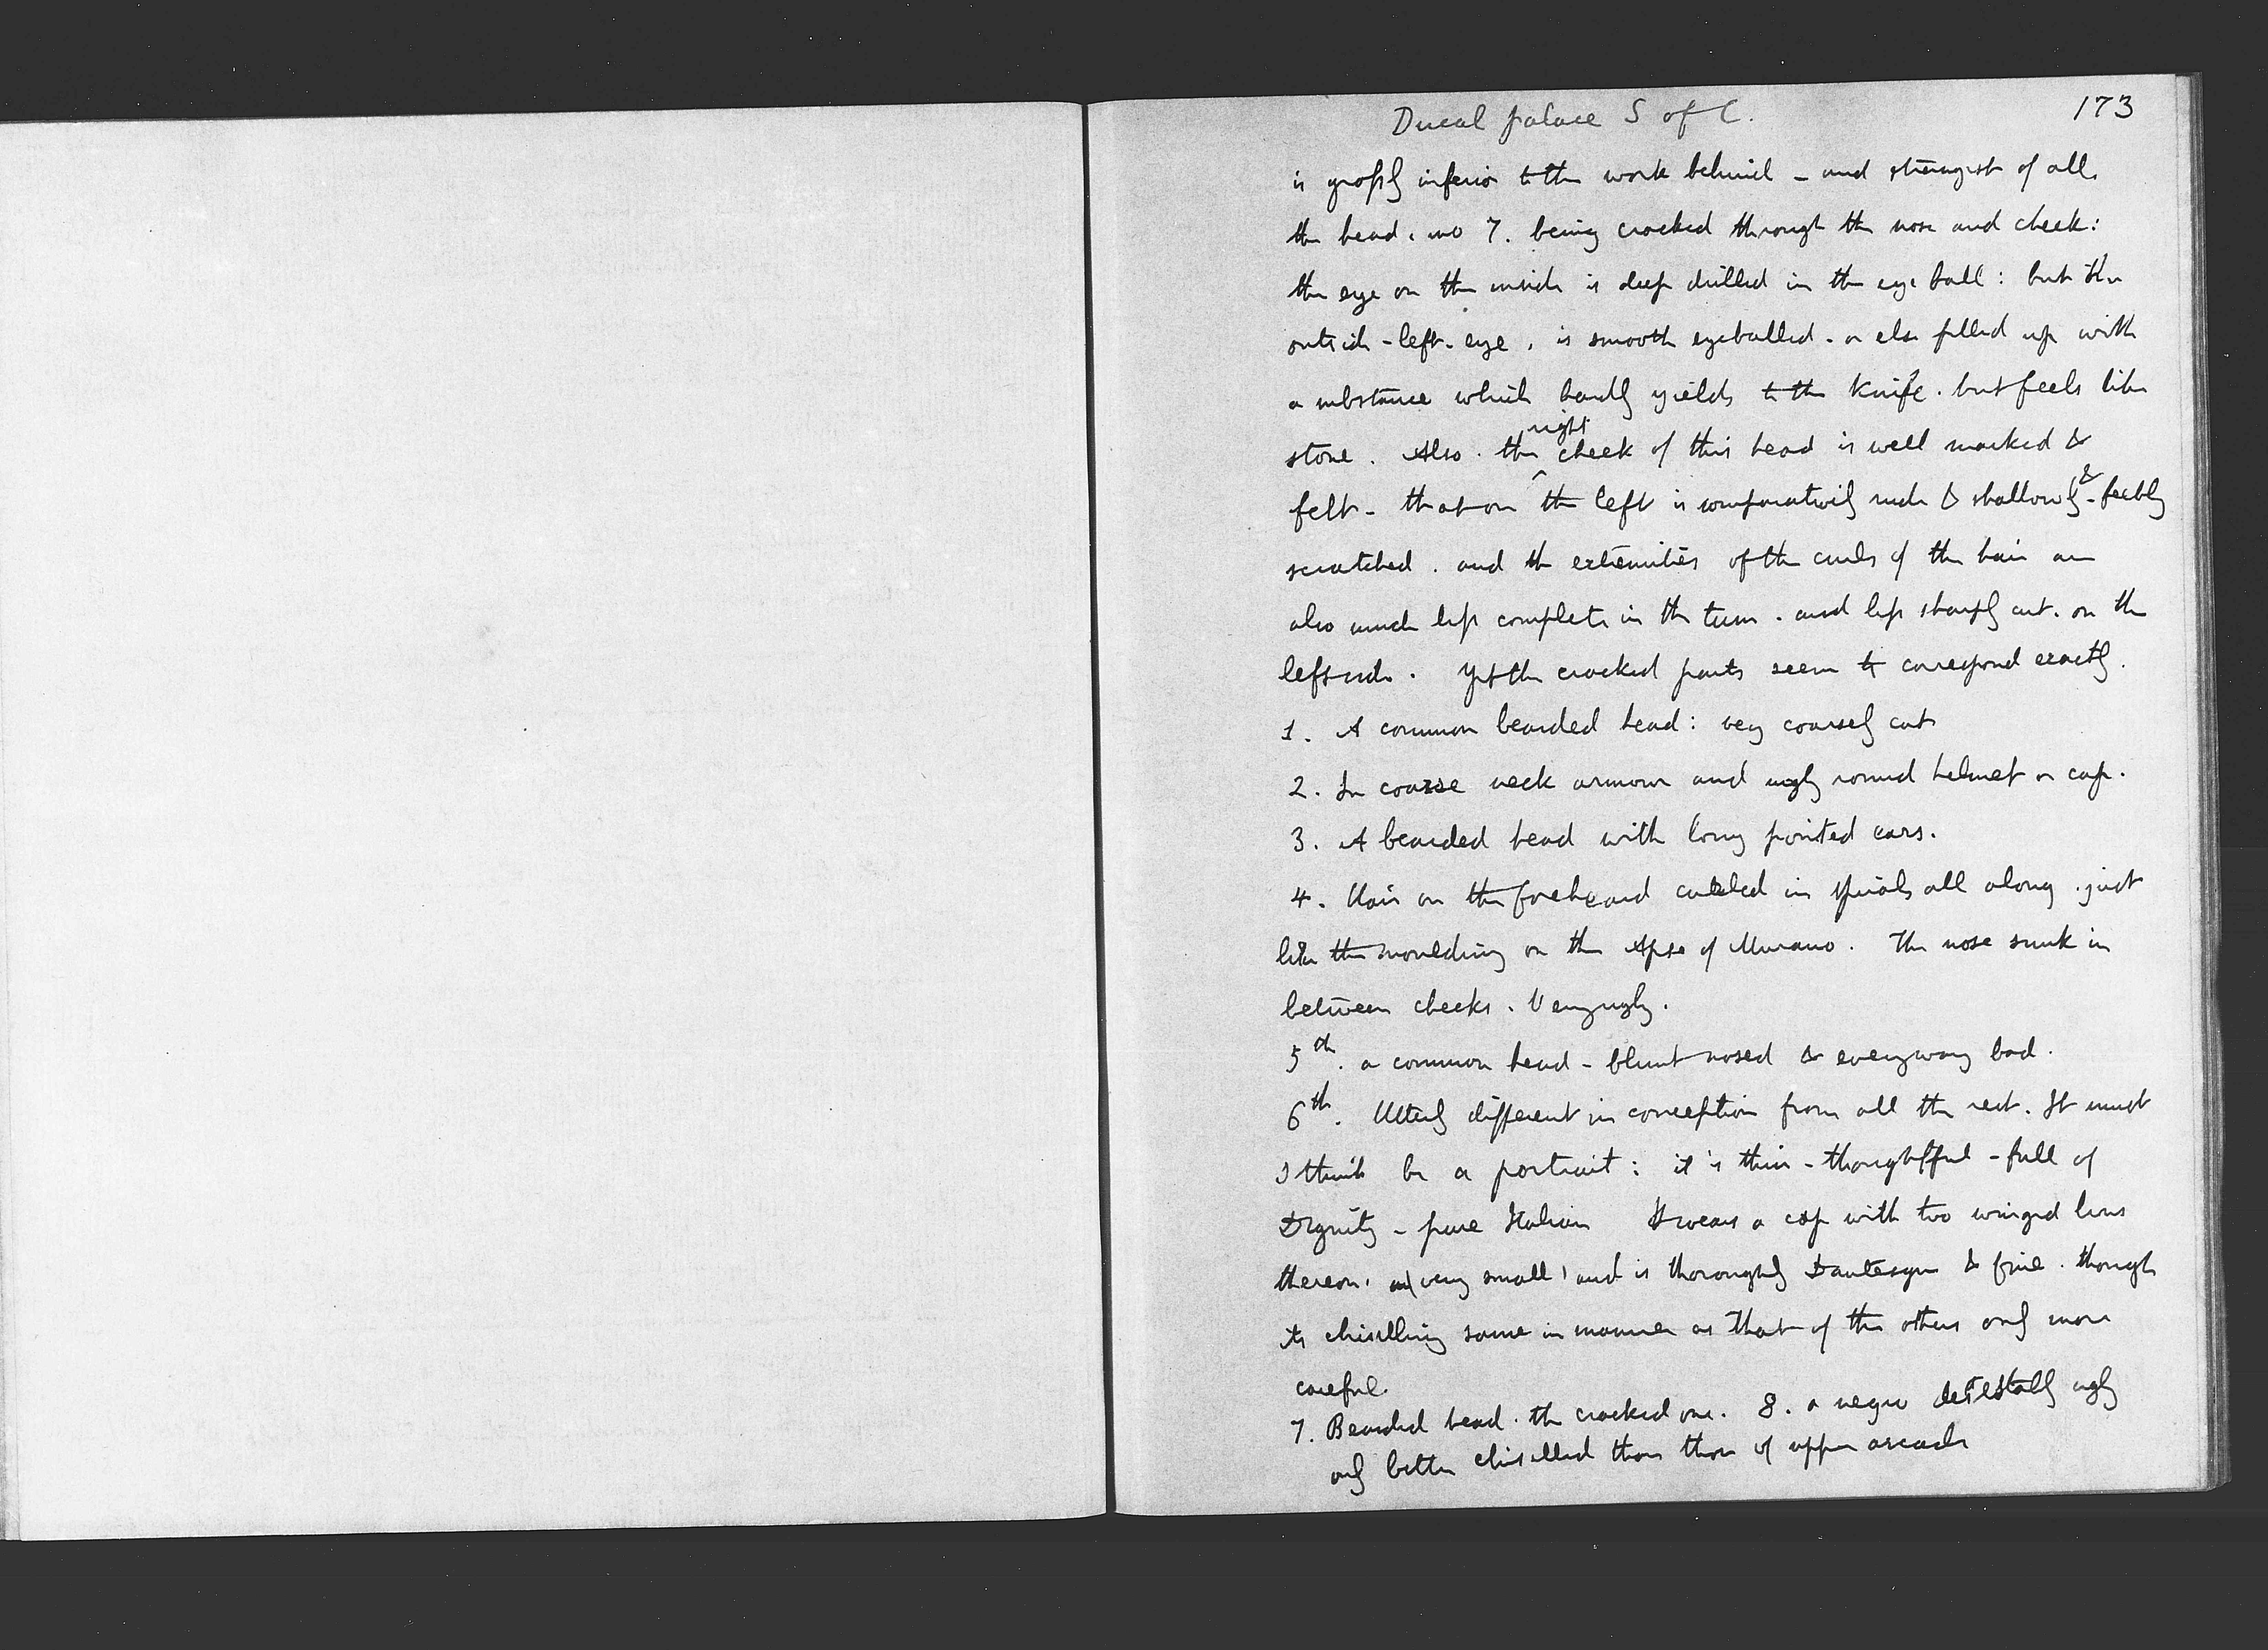 Ducal palace S of C.
173
is grossly inferior to the work behind - and strangest of all.
the head, no 7. being cracked through the nose and cheek:
the eye on the inside is deep drilled in the eye ball: but the
outside - left - eye, is smooth eyeballed - or else filled up with
a substance which hardly yields to the knife. but feels like
stone. Also. the right cheek of this head is well marked &
felt - that on the left is comparatively rude & shallowly & feebly
scratched. and the extremities of the curls of the hair are
also much less complete in the turn. and less sharply cut. on the
left side. Yet the cracked parts seem to correspond exactly.
1. A common bearded head: very coarsely cut
2. In coarse neck armour and ugly round helmet or cap.
3. A bearded head with long pointed ears.
4. Hair on the forehead curled in spirals all along. just
like the moulding on the Apse of Murano. The nose sunk in
between cheeks. Very ugly.
5th. a common head - blunt nosed & everyway bad.
6th. Utterly different in conception from all the rest. It must
I think be a portrait: it is thin - thoughtful - full of
Dignity - pure Italian It wears a cap with two winged lions
thereon, (very small) and is thoroughly Dantesque & fine. though
its chiselling same in manner as that of the others only more
careful.
7. Bearded head. the cracked one. 8. a negro detestably ugly
only better chiselled than those of upper arcade